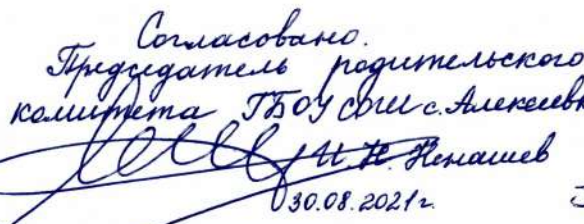 Согласовано.
Председатель родительского
комитета ГБОУ СОШ с. Алексеевк
И. Н. Кенашев
30.08.2021г.